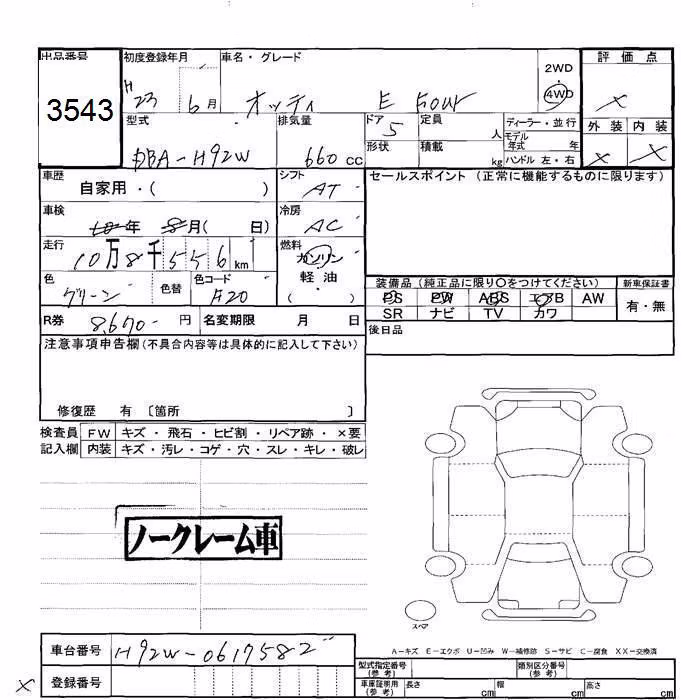 出品番号 初度登録年月 車名・グレード 2WD 評価点
3543 H 23 6月 オッティ E FOUR 4WD ×
型式 排気量 ドア 定員 ディーラー・並行 外装 内装
DBA-H92W 660 cc 5 人 モデル年式 年 × ×
形状 積載 kg ハンドル 左・右
車歴 シフト セールスポイント (正常に機能するものに限ります)
自家用・( ) AT
車検 冷房
年 8月( 日) AC
走行 燃料
10万8千556km ガソリン
軽油
( )
色 色替 色コード 装備品 (純正品に限り〇をつけてください) 新車保証書
グリーン F20 PS PW ABS エアB AW 有・無
SR ナビ TV カワ
R券 8,670- 円 名変期限 月 日 後日品
注意事項申告欄(不具合内容等は具体的に記入して下さい)
修復歴 有 〔箇所 〕
検査員 FW キズ・飛石・ヒビ割・リペア跡・×要
記入欄 内装 キズ・汚レ・コゲ・穴・スレ・キレ・破レ
ノークレーム車
スペア
A-キズ E-エクボ U-凹み W-補修跡 S-サビ C-腐食 XX-交換済
車台番号 H92W-0617582
型式指定番号(参考) 類別区分番号(参考)
× 登録番号
車庫証明用(参考) 長さ cm 幅 cm 高さ cm